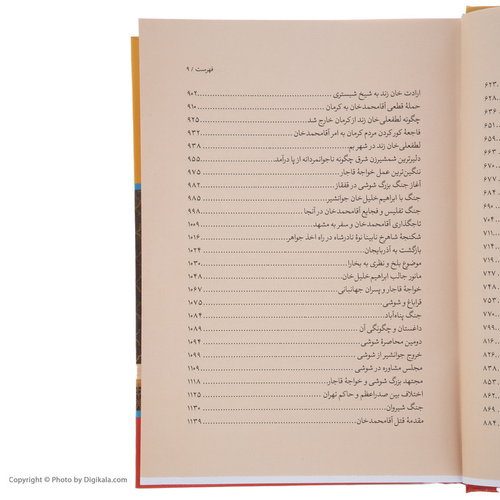 فهرست / ۹
ارادت خان زند به شیخ شبستری ۹۰۲
حملهٔ قطعی آقامحمدخان به کرمان ۹۱۰
چگونه لطفعلی‌خان زند از کرمان خارج شد ۹۲۵
فاجعهٔ کور کردن مردم کرمان به امر آقامحمدخان ۹۳۲
لطفعلی‌خان زند در شهر بم ۹۳۸
دلیرترین شمشیرزن شرق چگونه ناجوانمردانه از پا درآمد ۹۵۵
ننگین‌ترین عمل خواجهٔ قاجار ۹۷۵
آغاز جنگ بزرگ شوشی در قفقاز ۹۸۲
جنگ با ابراهیم خلیل‌خان جوانشیر ۹۸۵
جنگ تفلیس و فجایع آقامحمدخان در آنجا ۹۹۸
تاجگذاری آقامحمدخان و سفر به مشهد ۱۰۰۹
شکنجهٔ شاهرخ نابینا نوهٔ نادرشاه در راه اخذ جواهر ۱۰۱۶
بازگشت به آذربایجان ۱۰۲۴
موضوع بلخ و نظری به بخارا ۱۰۳۰
مانور جالب ابراهیم خلیل‌خان ۱۰۴۸
خواجهٔ قاجار و پسران جهانبانی ۱۰۶۷
قراباغ و شوشی ۱۰۷۵
جنگ پناه‌آباد ۱۰۸۴
داغستان و چگونگی آن ۱۰۸۹
دومین محاصرهٔ شوشی ۱۰۹۴
خروج جوانشیر از شوشی ۱۰۹۹
مجلس مشاوره در شوشی ۱۱۰۹
مجتهد بزرگ شوشی و خواجهٔ قاجار ۱۱۱۸
اختلاف بین صدراعظم و حاکم تهران ۱۱۲۵
جنگ شیروان ۱۱۳۰
مقدمهٔ قتل آقامحمدخان ۱۱۳۹
۶۲۳
۶۲۸
۶۳۶
۶۵۱
۶۵۹
۶۶۳
۶۷۰
۶۷۷
۶۸۴
۶۹۰
۷۰۴
۷۱۱
۷۱۴
۷۱۹
۷۲۷
۷۴۸
۷۵۳
۷۷۰
۷۹۹
۸۱۶
۸۲۶
۸۳۸
۸۵۳
۸۶۲
۸۶۹
۸۸۴
Copyright © Photo by Digikala.com